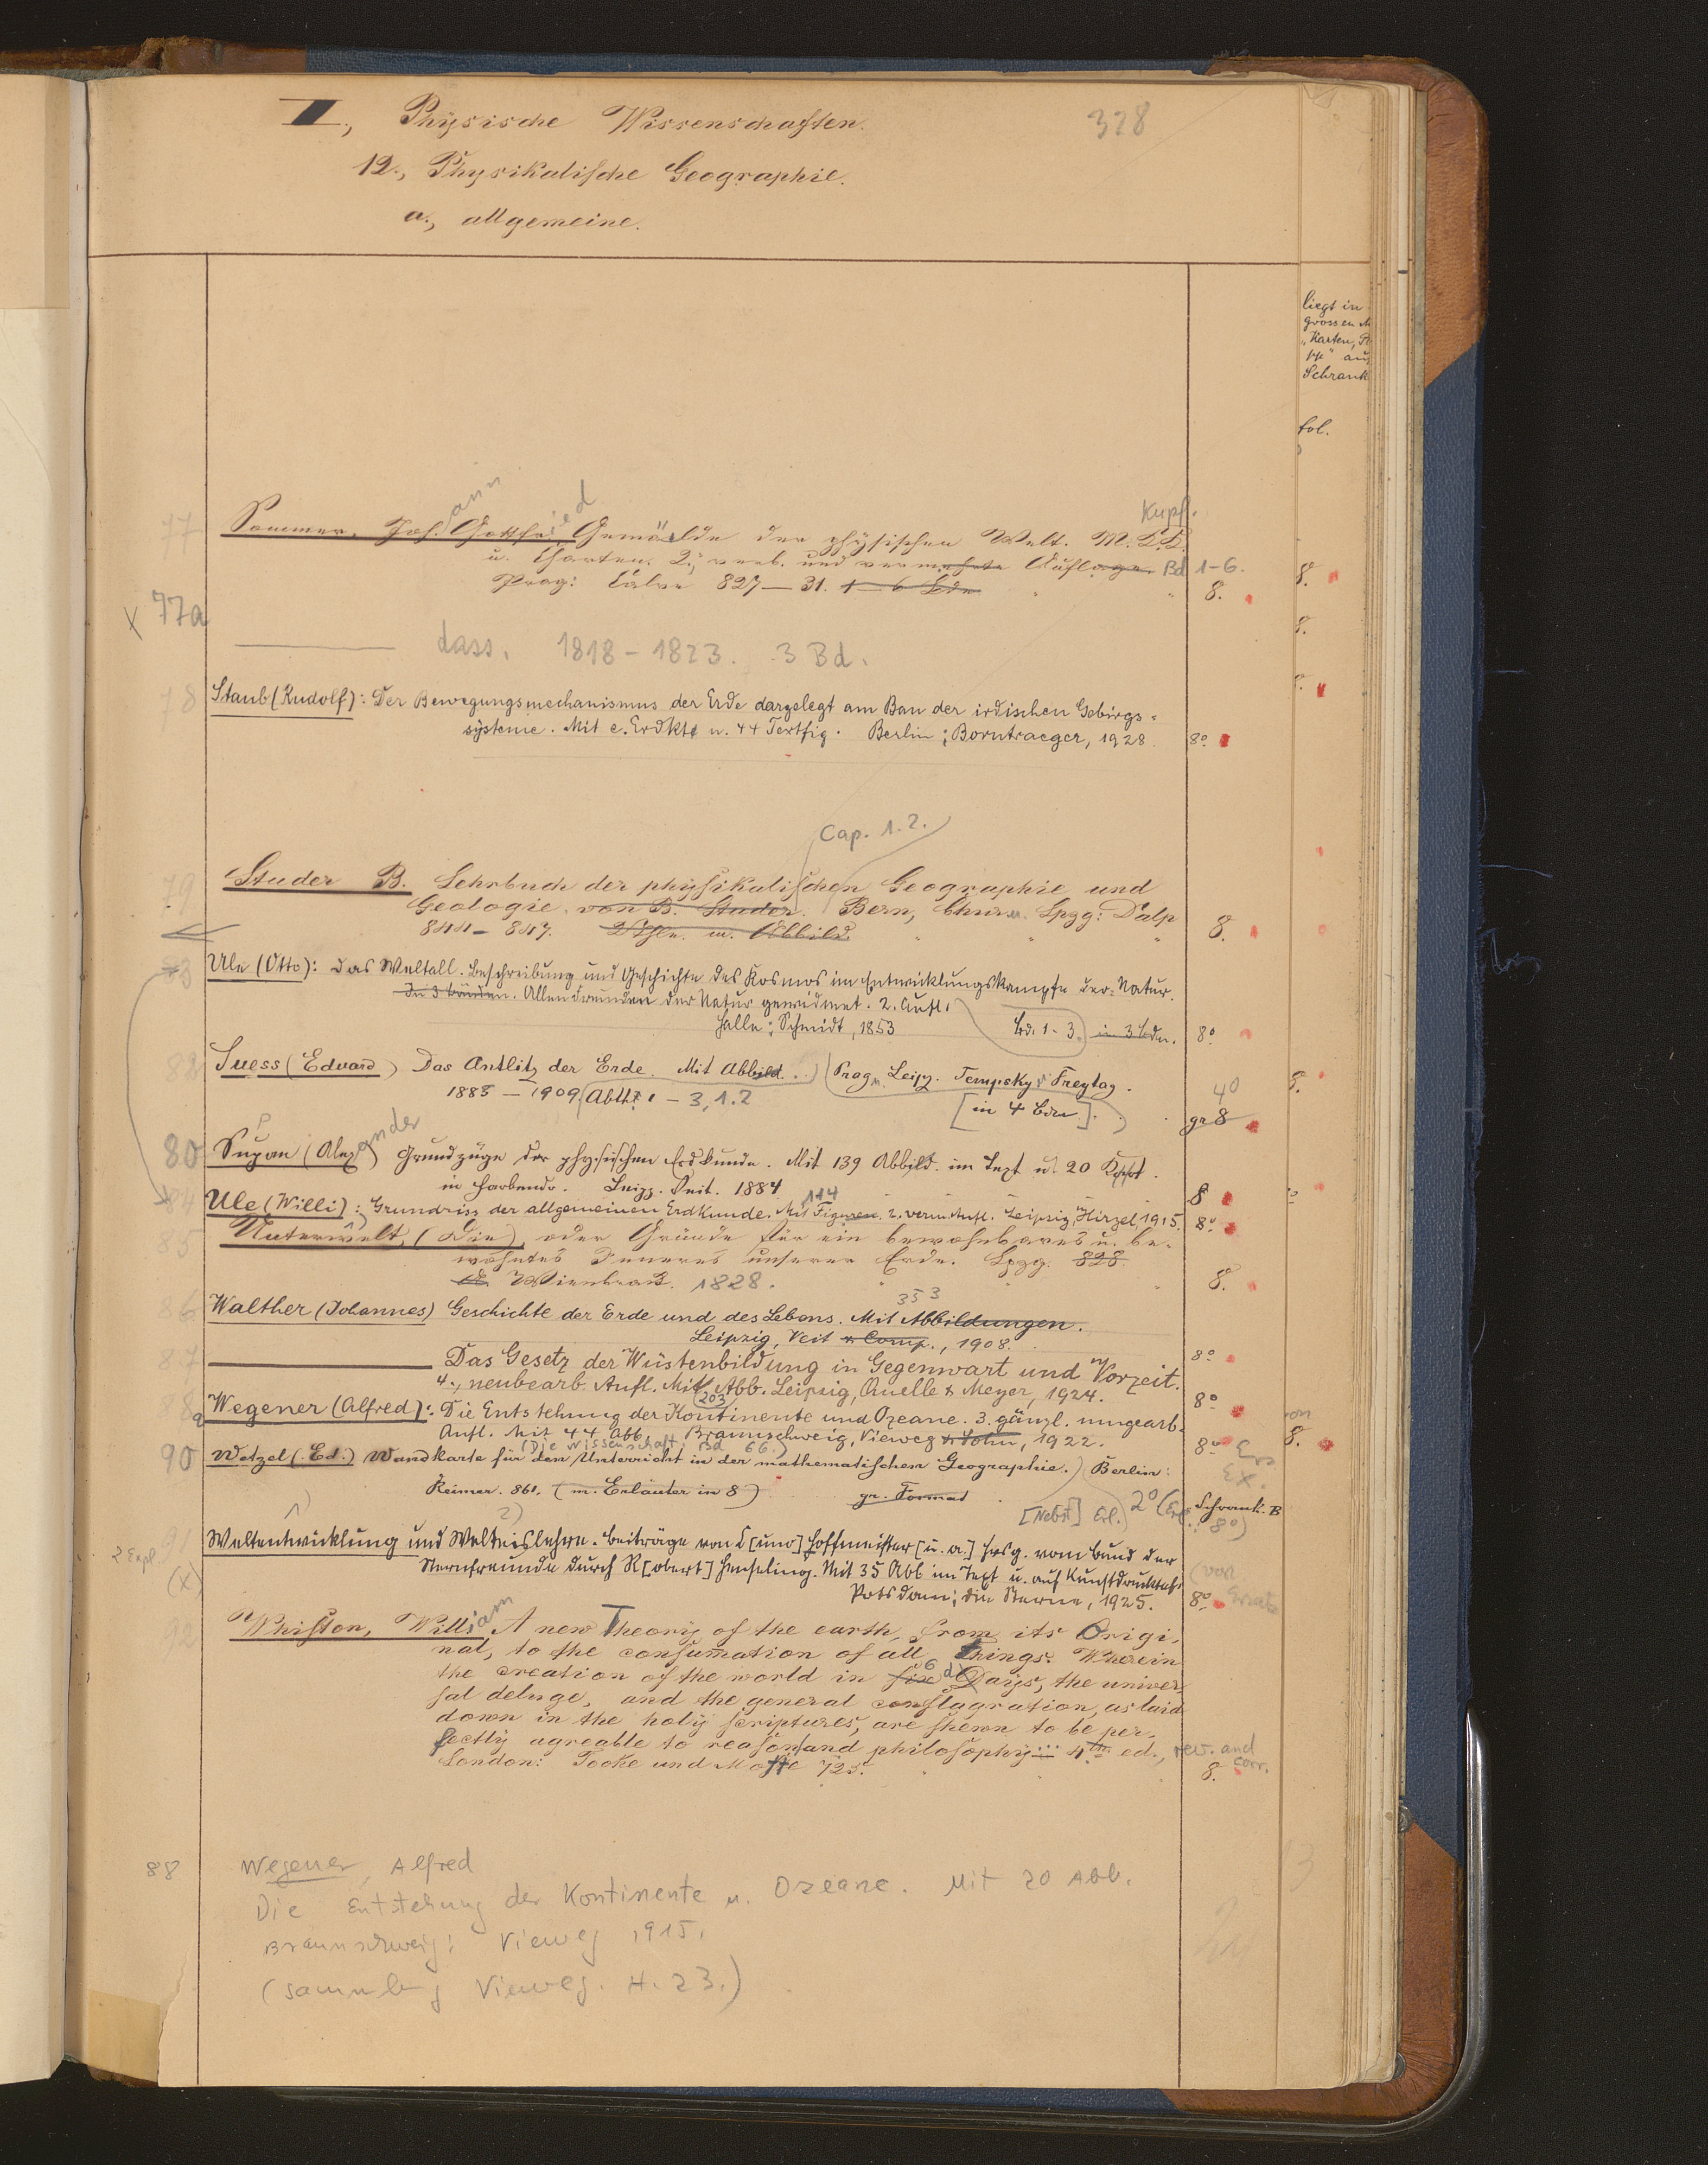 II., Physische Wissenschaften. 328
12., Physikalische Geographie.
a., allgemeine.
liegt in
grossen
"Karten,
Schrank
fol.
77 Sommer, Joh.ann Gottfried Gemälde der physischen Welt. M. Kupf.
u. Charten. 2., verb. und vermehrte Auflage. Bd 1-6.
Prag: Calve 827—31. 1—6 Bde 8.
x 77a
——— dass. 1818-1823. 3 Bd.
78 Staub (Rudolf): Der Bewegungsmechanismus der Erde dargelegt am Bau der irdischen Gebirgs=
systeme. Mit e. Erdkte u. 44 Textfig. Berlin: Borntraeger, 1928. 8°
Cap. 1.2.
79 Studer B. Lehrbuch der physikalischen Geographie und
Geologie. von B. Studer. Bern, Chur u. Lpzg: Dalp
844—847. 2 Thle. m. Abbild. 8.
83 Ule (Otto): Das Weltall. Beschreibung und Geschichte des Kosmos im Entwicklungskampfe der Natur.
In 3 Bänden. Allen Freunden der Natur gewidmet. 2. Aufl.
Halle: Schmidt, 1853 Bd. 1-3. in 3 Bdn. 8°
Suess (Eduard) Das Antlitz der Erde. Mit Abbild. Prag u. Leipz. Tempsky Freytag.
1885 — 1909 Abth. 1 — 3, 1.2 [in 4 Bdn]. gr 8 4°
80 Supan (Alexander) Grundzüge der physischen Erdkunde. Mit 139 Abbild. im Text u. 20 Kart.
in Farbendr. Leipz. Veit. 1884 8
84 Ule (Willi): Grundriss der allgemeinen Erdkunde. Mit 114 Figuren. 2. verm. Aufl. Leipzig, Hirzel, 1915. 8°
85 Unterwelt, (Die), oder Gründe für ein bewohnbares u. be-
wohntes Inneres unserer Erde. Lpzg. 828.
Wienbrack. 1828. 8.
86 Walther (Johannes) Geschichte der Erde und des Lebens. Mit 353 Abbildungen.
Leipzig, Veit & Comp., 1908. 8°
87 ——— Das Gesetz der Wüstenbildung in Gegenwart und Vorzeit.
4., neubearb. Aufl. Mit 203 Abb. Leipzig, Quelle & Meyer, 1924. 8°
88a Wegener (Alfred): Die Entstehung der Kontinente und Ozeane. 3. gänzl. umgearb.
Aufl. Mit 44 Abb. Braunschweig, Vieweg & Sohn, 1922. 8°
(Die Wissenschaft. Bd 66.)
90 Wetzel (Ed.) Wandkarte für den Unterricht in der mathematischen Geographie. Berlin:
Reimer. 861. (m. Erläuter in 8) gr. Format
[Nebst] Erl. 2° (Erl. 8°) Schrank B
91 Weltentwicklung und Welteislehre. Beiträge von C[uno] Hoffmeister [u. a.] hrsg. vom Bund der
2 Expl. (X) Sternfreunde durch R[obert] Henseling. Mit 35 Abb im Text u. auf Kunstdrucktaf.
Potsdam: Die Sterne, 1925. 8°
92 Whiston, William A new Theory of the earth, from its Origi-
nal, to the consumation of all Things. Wherein
the creation of the world in six 6 days, the univer-
sal deluge, and the general conflagration, as laid
down in the holy scriptures, are shewn to be per-
fectly agreable to reason and philosophy... 4th ed., rev. and corr.
London: Tooke und Motte 725. 8.
88 Wegener, Alfred
Die Entstehung der Kontinente u. Ozeane. Mit 20 Abb.
Braunschweig: Vieweg 1915.
(Sammlung Vieweg. H. 23.)